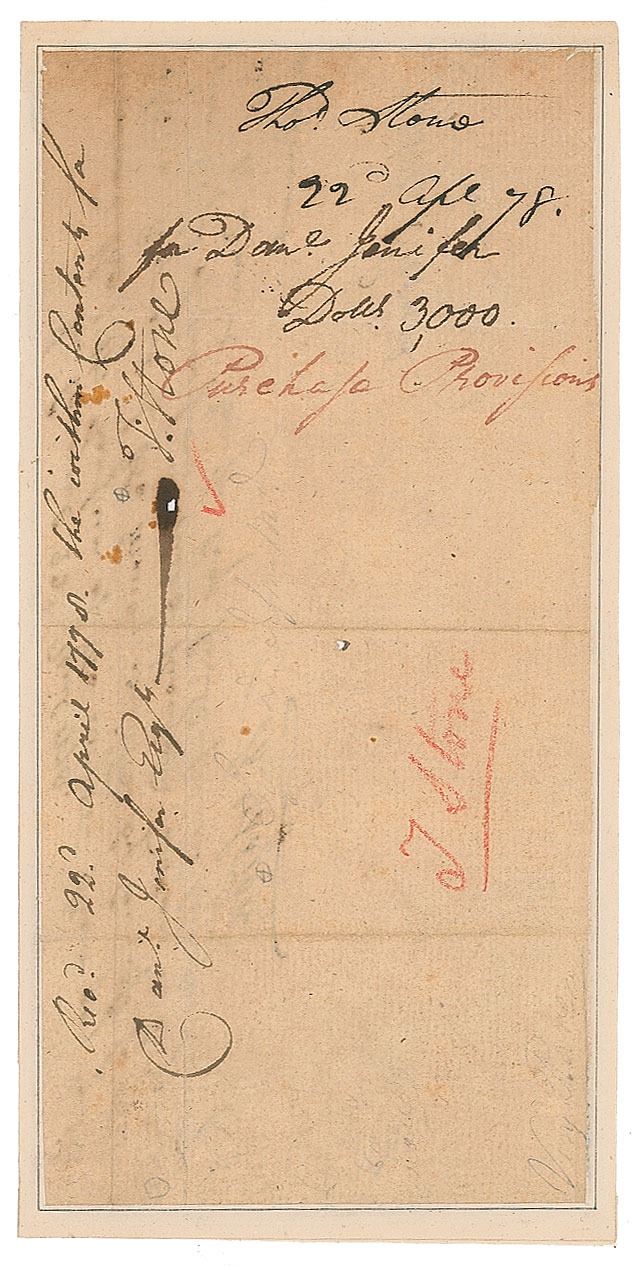 Thos. Stone
22d Apl 78.
for Danl. Jenifer
Dolls. 3,000.
Purchase Provisions
Recd. 22d. April 1778. the within Contents for
Danl. Jenifer Esqr.
T. Stone
T Stone